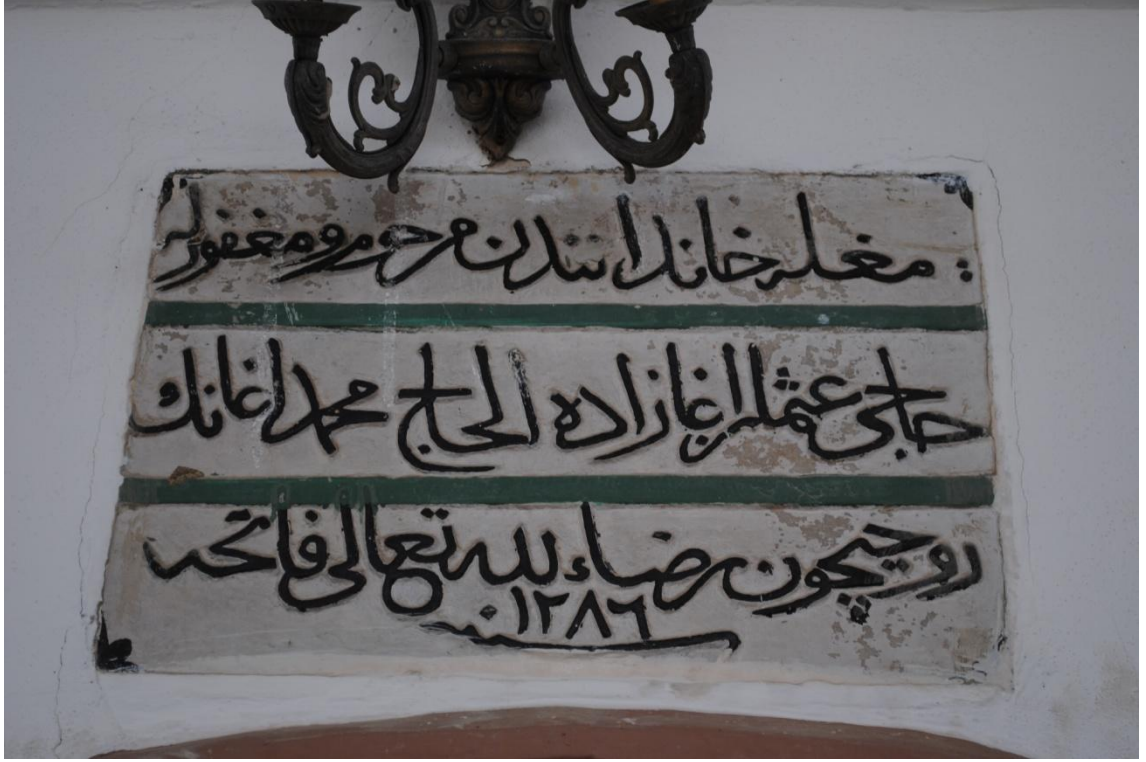 مغله خاندانندن مرحوم و مغفور له
حاجی عثمان اغا زاده الحاج محمد اغانك
روحیچون رضاء لله تعالی فاتحه
سنه ١٢٨٦